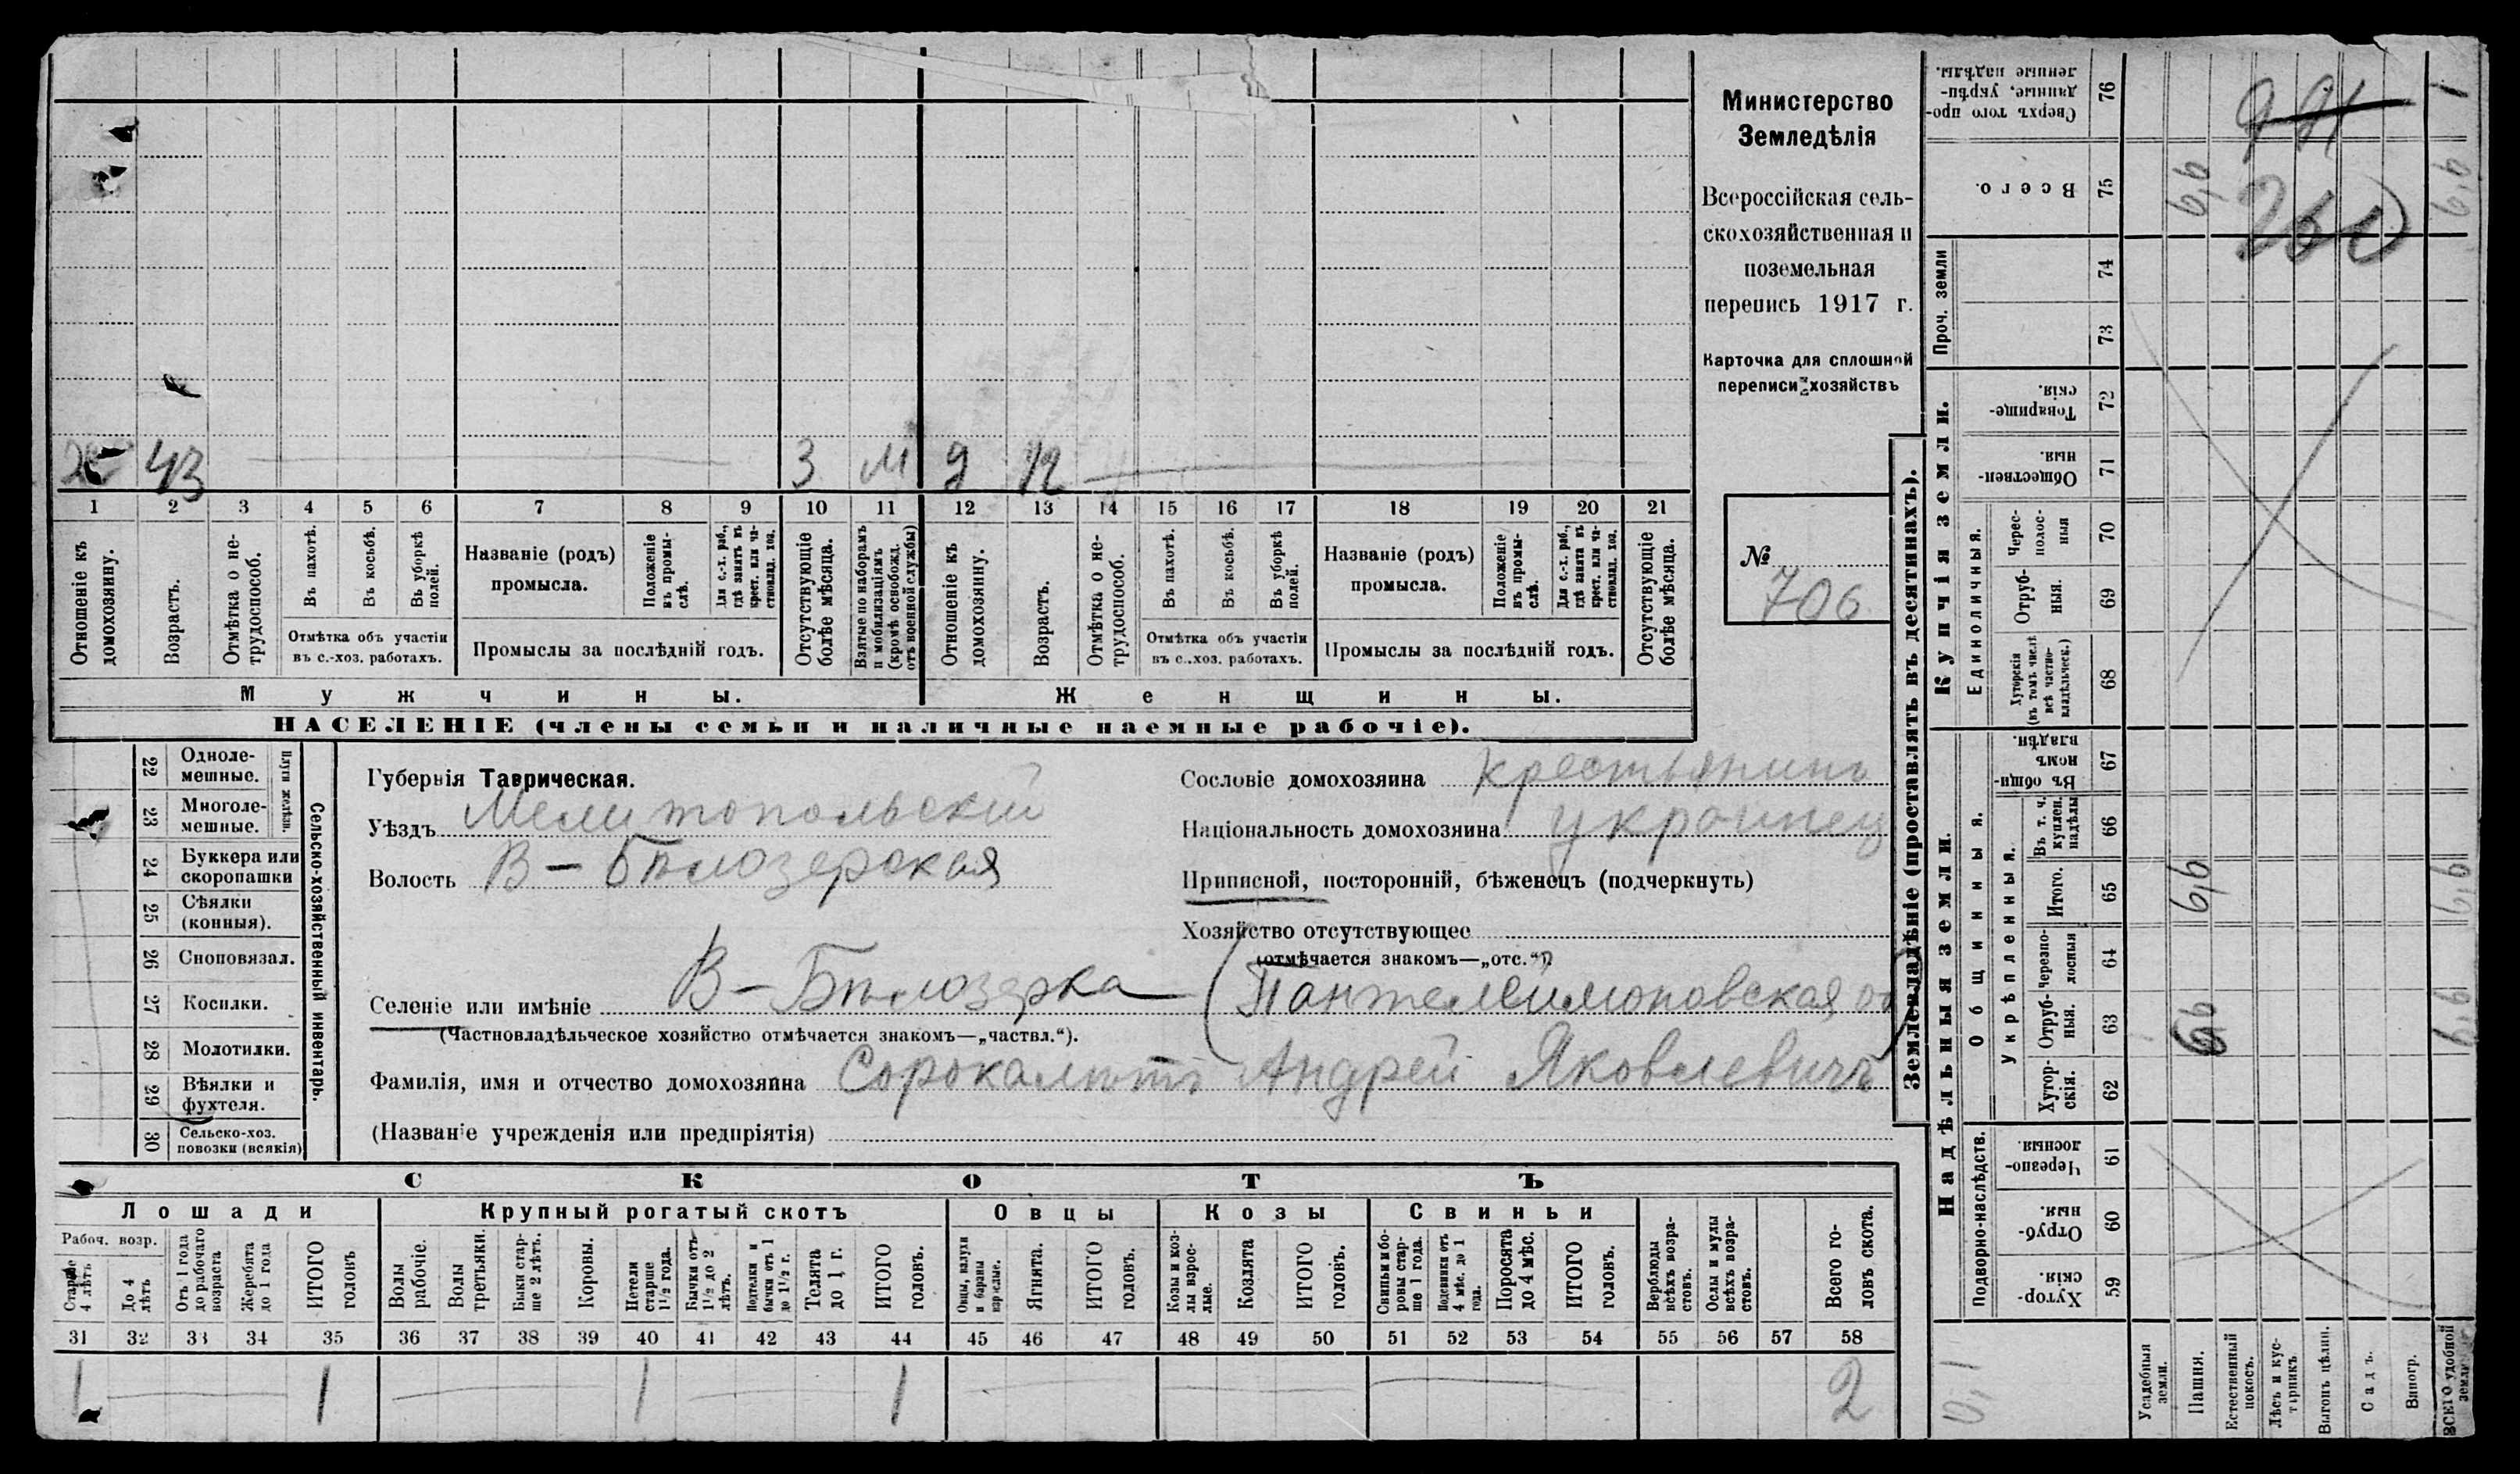 Министерство
Земледѣлія
Всероссійская сель-
скохозяйственная и
поземельная
перепись 1917 г.
Карточка для сплошной
переписи хозяйствъ
№
706
43 3 М 9 12
1 2 3 4 5 6 7 8 9 10 11 12 13 14 15 16 17 18 19 20 21
Отношеніе къ домохозяину.
Возрастъ.
Отмѣтка о не-трудоспособ.
Въ пахотѣ.
Въ косьбѣ.
Въ уборкѣ полей.
Отмѣтка объ участіи
въ с.-хоз. работахъ.
Названіе (родъ)
промысла.
Положеніе въ промы-слѣ.
Для с.-х. раб., гдѣ занятъ въ крест. или ча-стновлад. хоз.
Промыслы за послѣдній годъ.
Отсутствующіе болѣе мѣсяца.
Взятые по наборамъ и мобилизаціямъ (кромѣ освобожд. отъ военной службы)
Отношеніе къ домохозяину.
Возрастъ.
Отмѣтка о не-трудоспособ.
Въ пахотѣ.
Въ косьбѣ.
Въ уборкѣ полей.
Отмѣтка объ участіи
въ с.-хоз. работахъ.
Названіе (родъ)
промысла.
Положеніе въ промы-слѣ.
Для с.-х. раб., гдѣ занята въ крест. или ча-стновлад. хоз.
Промыслы за послѣдній годъ.
Отсутствующіе болѣе мѣсяца.
Мужчины. Женщины.
НАСЕЛЕНІЕ (члены семьи и наличные наемные рабочіе).
Сельско-хозяйственный инвентарь.
Плуги желѣзн.
22 Одноле-мешные.
23 Многоле-мешные.
24 Буккера или скоропашки
25 Сѣялки (конныя).
26 Сноповязал.
27 Косилки.
28 Молотилки.
29 Вѣялки и фухтеля.
30 Сельско-хоз. повозки (всякія)
Губернія Таврическая.
Уѣздъ Мелитопольскій
Волость В-Бѣлозерская
Селеніе или имѣніе В-Бѣлозерка (Пантелеимоновская об)
(Частновладѣльческое хозяйство отмѣчается знакомъ—„частвл.“).
Фамилія, имя и отчество домохозяина Сорокалѣтъ Андрей Яковлевичъ
(Названіе учрежденія или предпріятія)
Сословіе домохозяина крестьянинъ
Національность домохозяина украинец
Приписной, посторонній, бѣженецъ (подчеркнуть)
Хозяйство отсутствующее
(отмѣчается знакомъ—„отс.“)
СКОТЪ
Лошади Крупный рогатый скотъ Овцы Козы Свиньи
Рабоч. возр.
Старше 4 лѣтъ
До 4 лѣтъ
Отъ 1 года до рабочаго возраста
Жеребята до 1 года
ИТОГО головъ
Волы рабочіе.
Волы третьяки.
Быки стар-ше 2 лѣтъ.
Коровы.
Нетели старше 1½ года.
Бычки отъ 1½ до 2 лѣтъ.
Подтелки и бычки отъ 1 до 1½ г.
Телята до 1 г.
ИТОГО головъ.
Овцы, валухи и бараны взрослые.
Ягнята.
ИТОГО головъ.
Козы и коз-лы взрос-лые.
Козлята
ИТОГО головъ.
Свиньи и бо-ровы стар-ше 1 года.
Подсвинки отъ 4 мѣс. до 1 года.
Поросята до 4 мѣс.
ИТОГО головъ.
Верблюды всѣхъ возра-стовъ.
Ослы и мулы всѣхъ возра-стовъ.
Всего го-ловъ скота.
31 32 33 34 35 36 37 38 39 40 41 42 43 44 45 46 47 48 49 50 51 52 53 54 55 56 57 58
1 1 1 1 2
Землевладѣніе (проставлять въ десятинахъ).
Надѣльныя земли. Купчія земли. Проч. земли
Подворно-наслѣдств.
Общинныя.
Укрѣпленныя.
Единоличныя.
Хутор-скія. 59
Отруб-ныя. 60
Черезпо-лосныя. 61
Хутор-скія. 62
Отруб-ныя. 63
Черезпо-лосныя 64
Итого. 65
Въ т. ч. куплен. надѣлы 66
Въ общи-номъ владѣн. 67
Хуторскія (въ томъ числѣ всѣ частно-владѣльческ.) 68
Отруб-ныя. 69
Черес-полос-ныя 70
Обществен-ныя. 71
Товарище-скія. 72
73
74
Всего. 75
Сверхъ того про-данные, укрѣп-ленные надѣлы. 76
Усадебныя земли.
Пашня.
Естественный покосъ.
Лѣсъ и кус-тарникъ
Выгонъ цѣлин.
Садъ.
Виногр.
ВСЕГО удобной земли
0,1
9,9
9,9
9,9
9,9
9,9
260